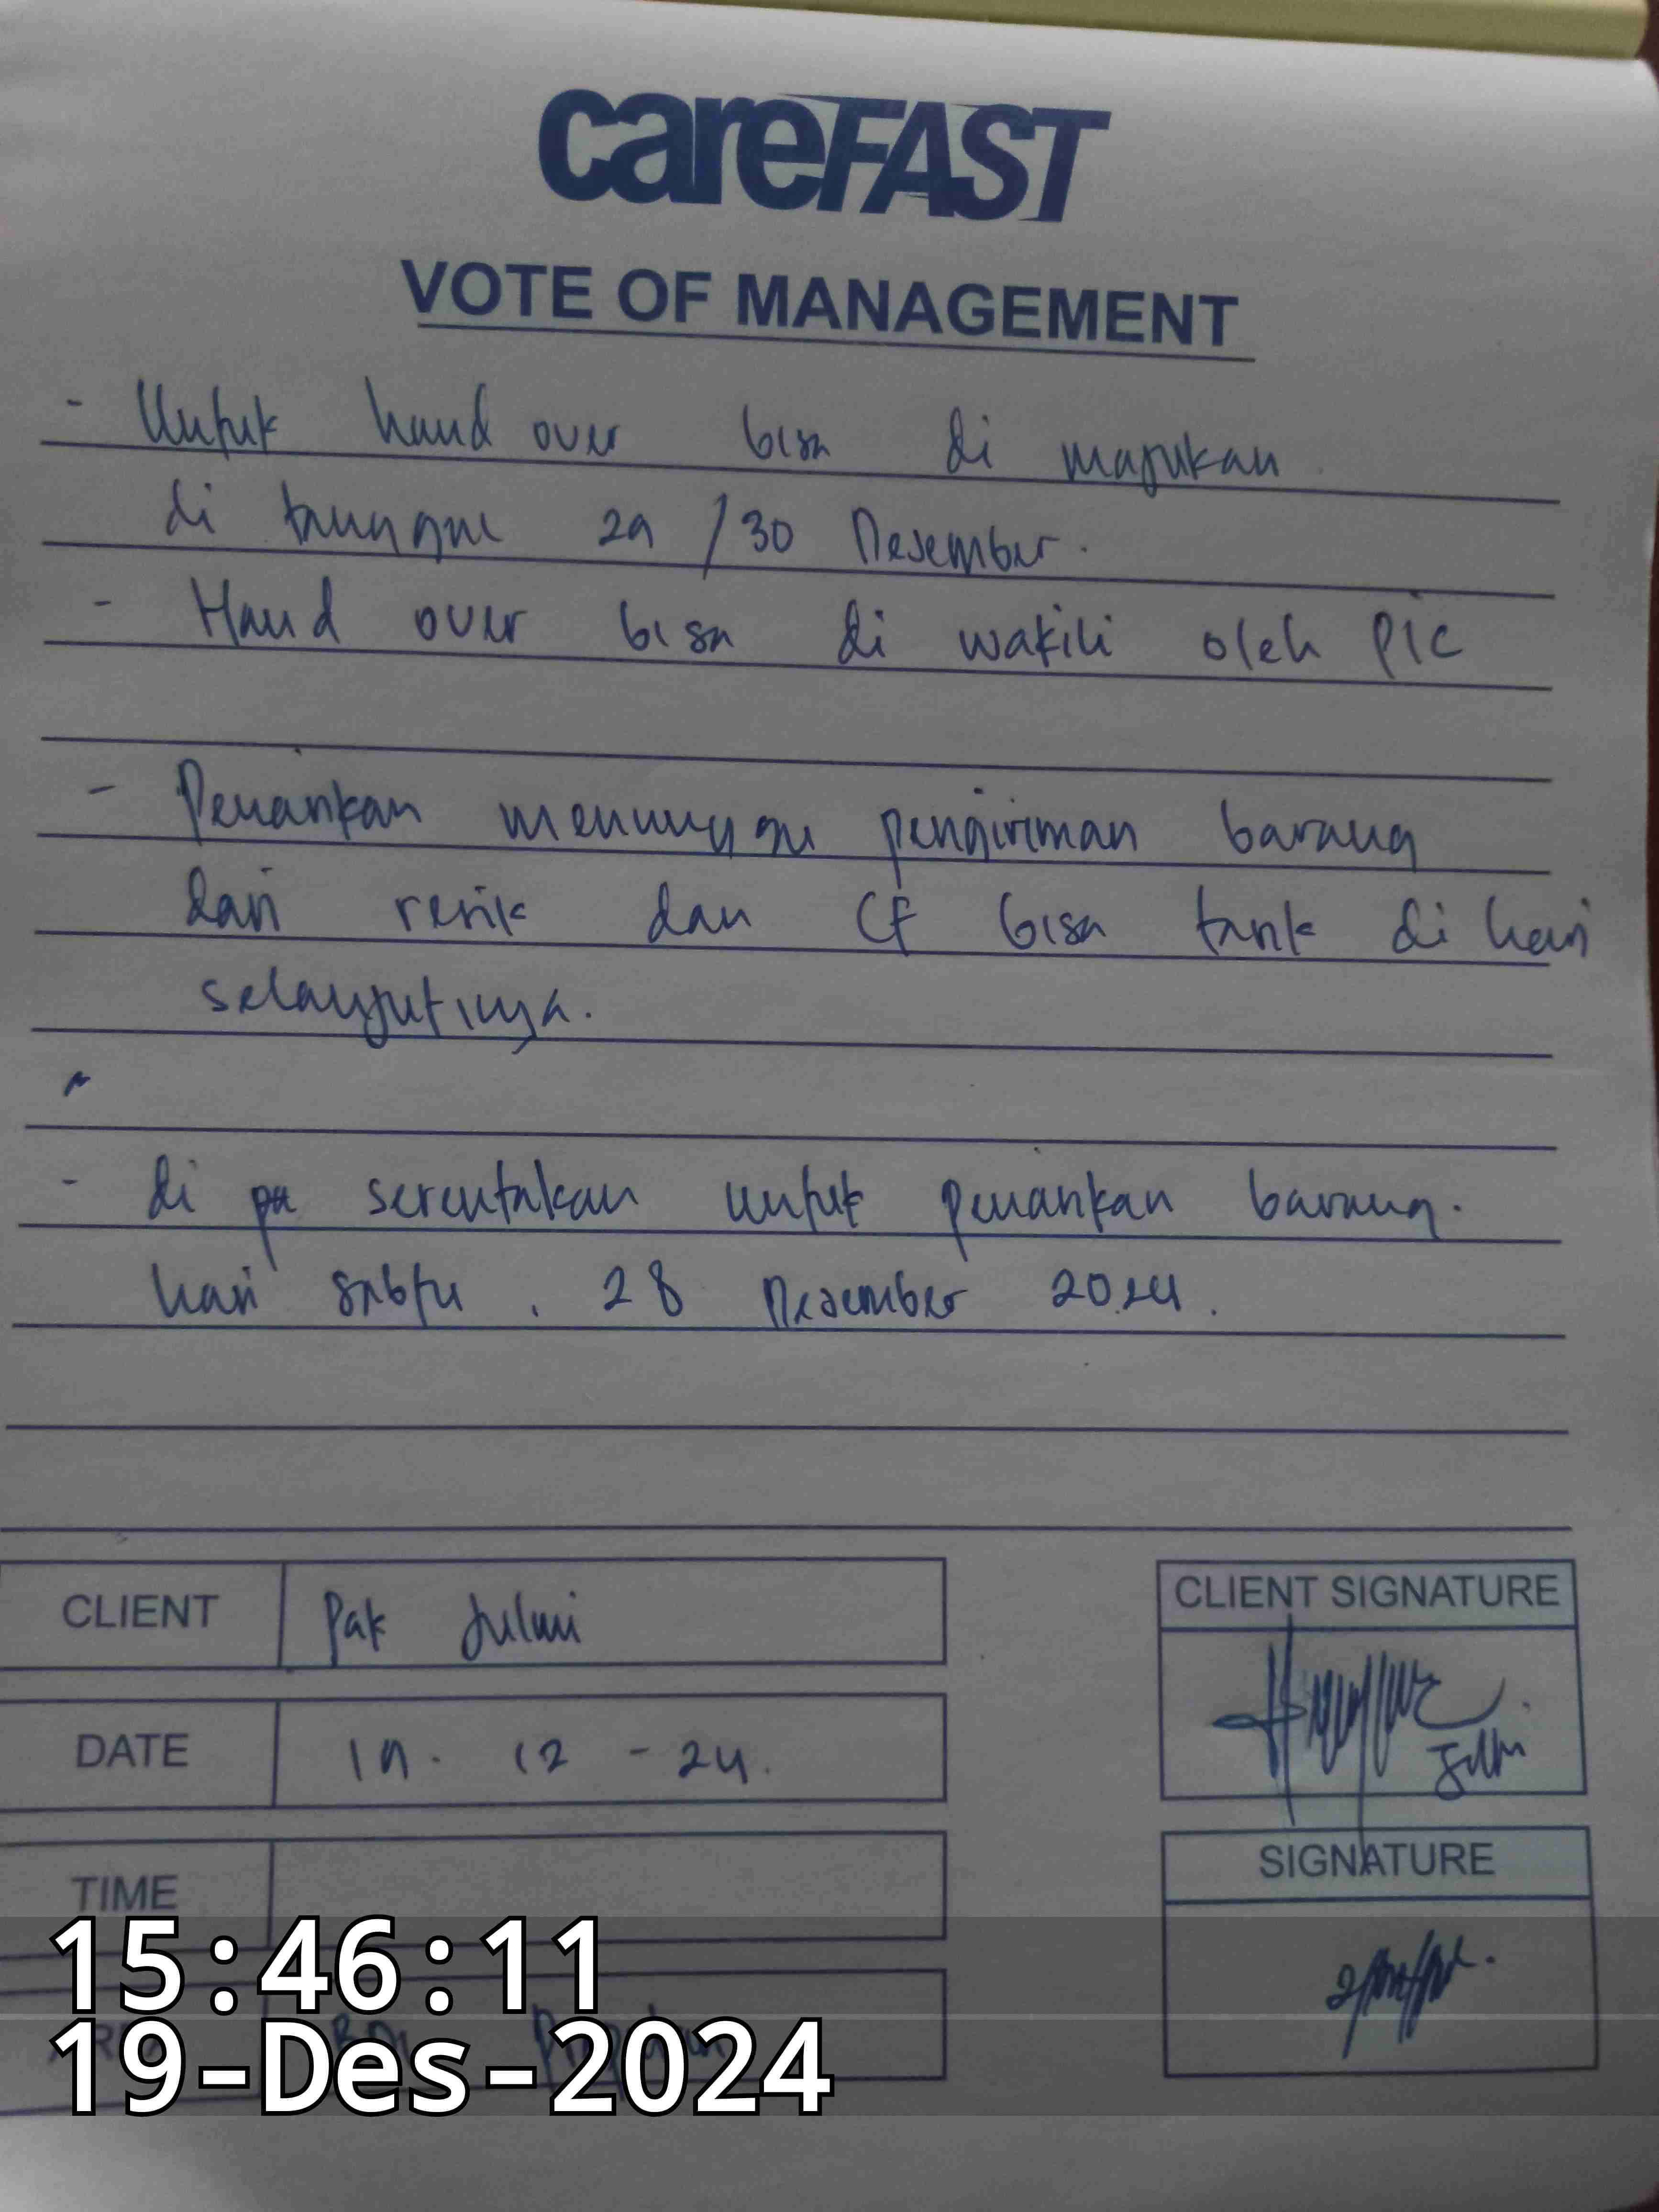 careFAST
VOTE OF MANAGEMENT
- Untuk hand over bisa di majukan
di tanggal 29 / 30 Desember.
- Hand over bisa di wakili oleh PIC
- Penarikan menunggu pengiriman barang
dari resik dan CF bisa tarik di hari
selanjutnya.
- di pa serentakan untuk penarikan barang.
hari sabtu, 28 Desember 2024.
CLIENT Pak Julmi
CLIENT SIGNATURE
DATE 19 - 12 - 24.
TIME
SIGNATURE
15:46:11
19-Des-2024